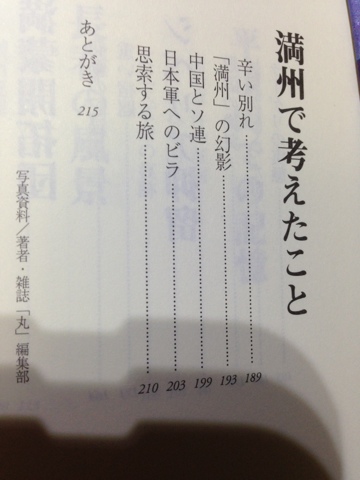 満州で考えたこと
辛い別れ……………………189
「満州」の幻影……………………193
中国とソ連……………………199
日本軍へのビラ……………………203
思索する旅……………………210
あとがき 215
写真資料／著者・雑誌「丸」編集部